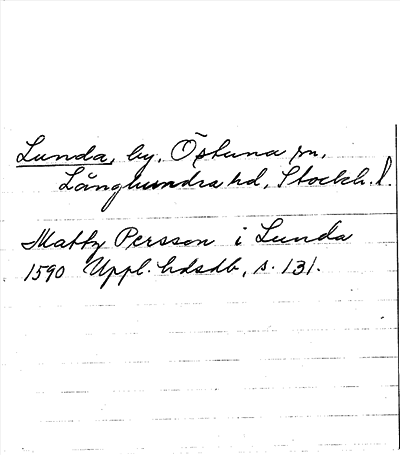 Lunda, by, Östuna sn,
Långhundra hd, Stockh. l.
Matts Persson i Lunda
1590 Uppl. hdsdb, s. 131.